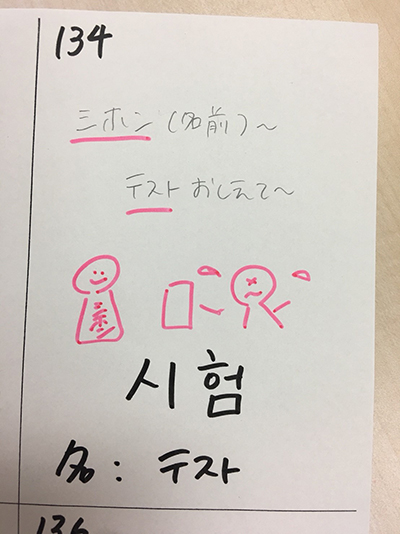 134
ミホン(名前)～
テストおしえて～
シホン
시험
名: テスト
136